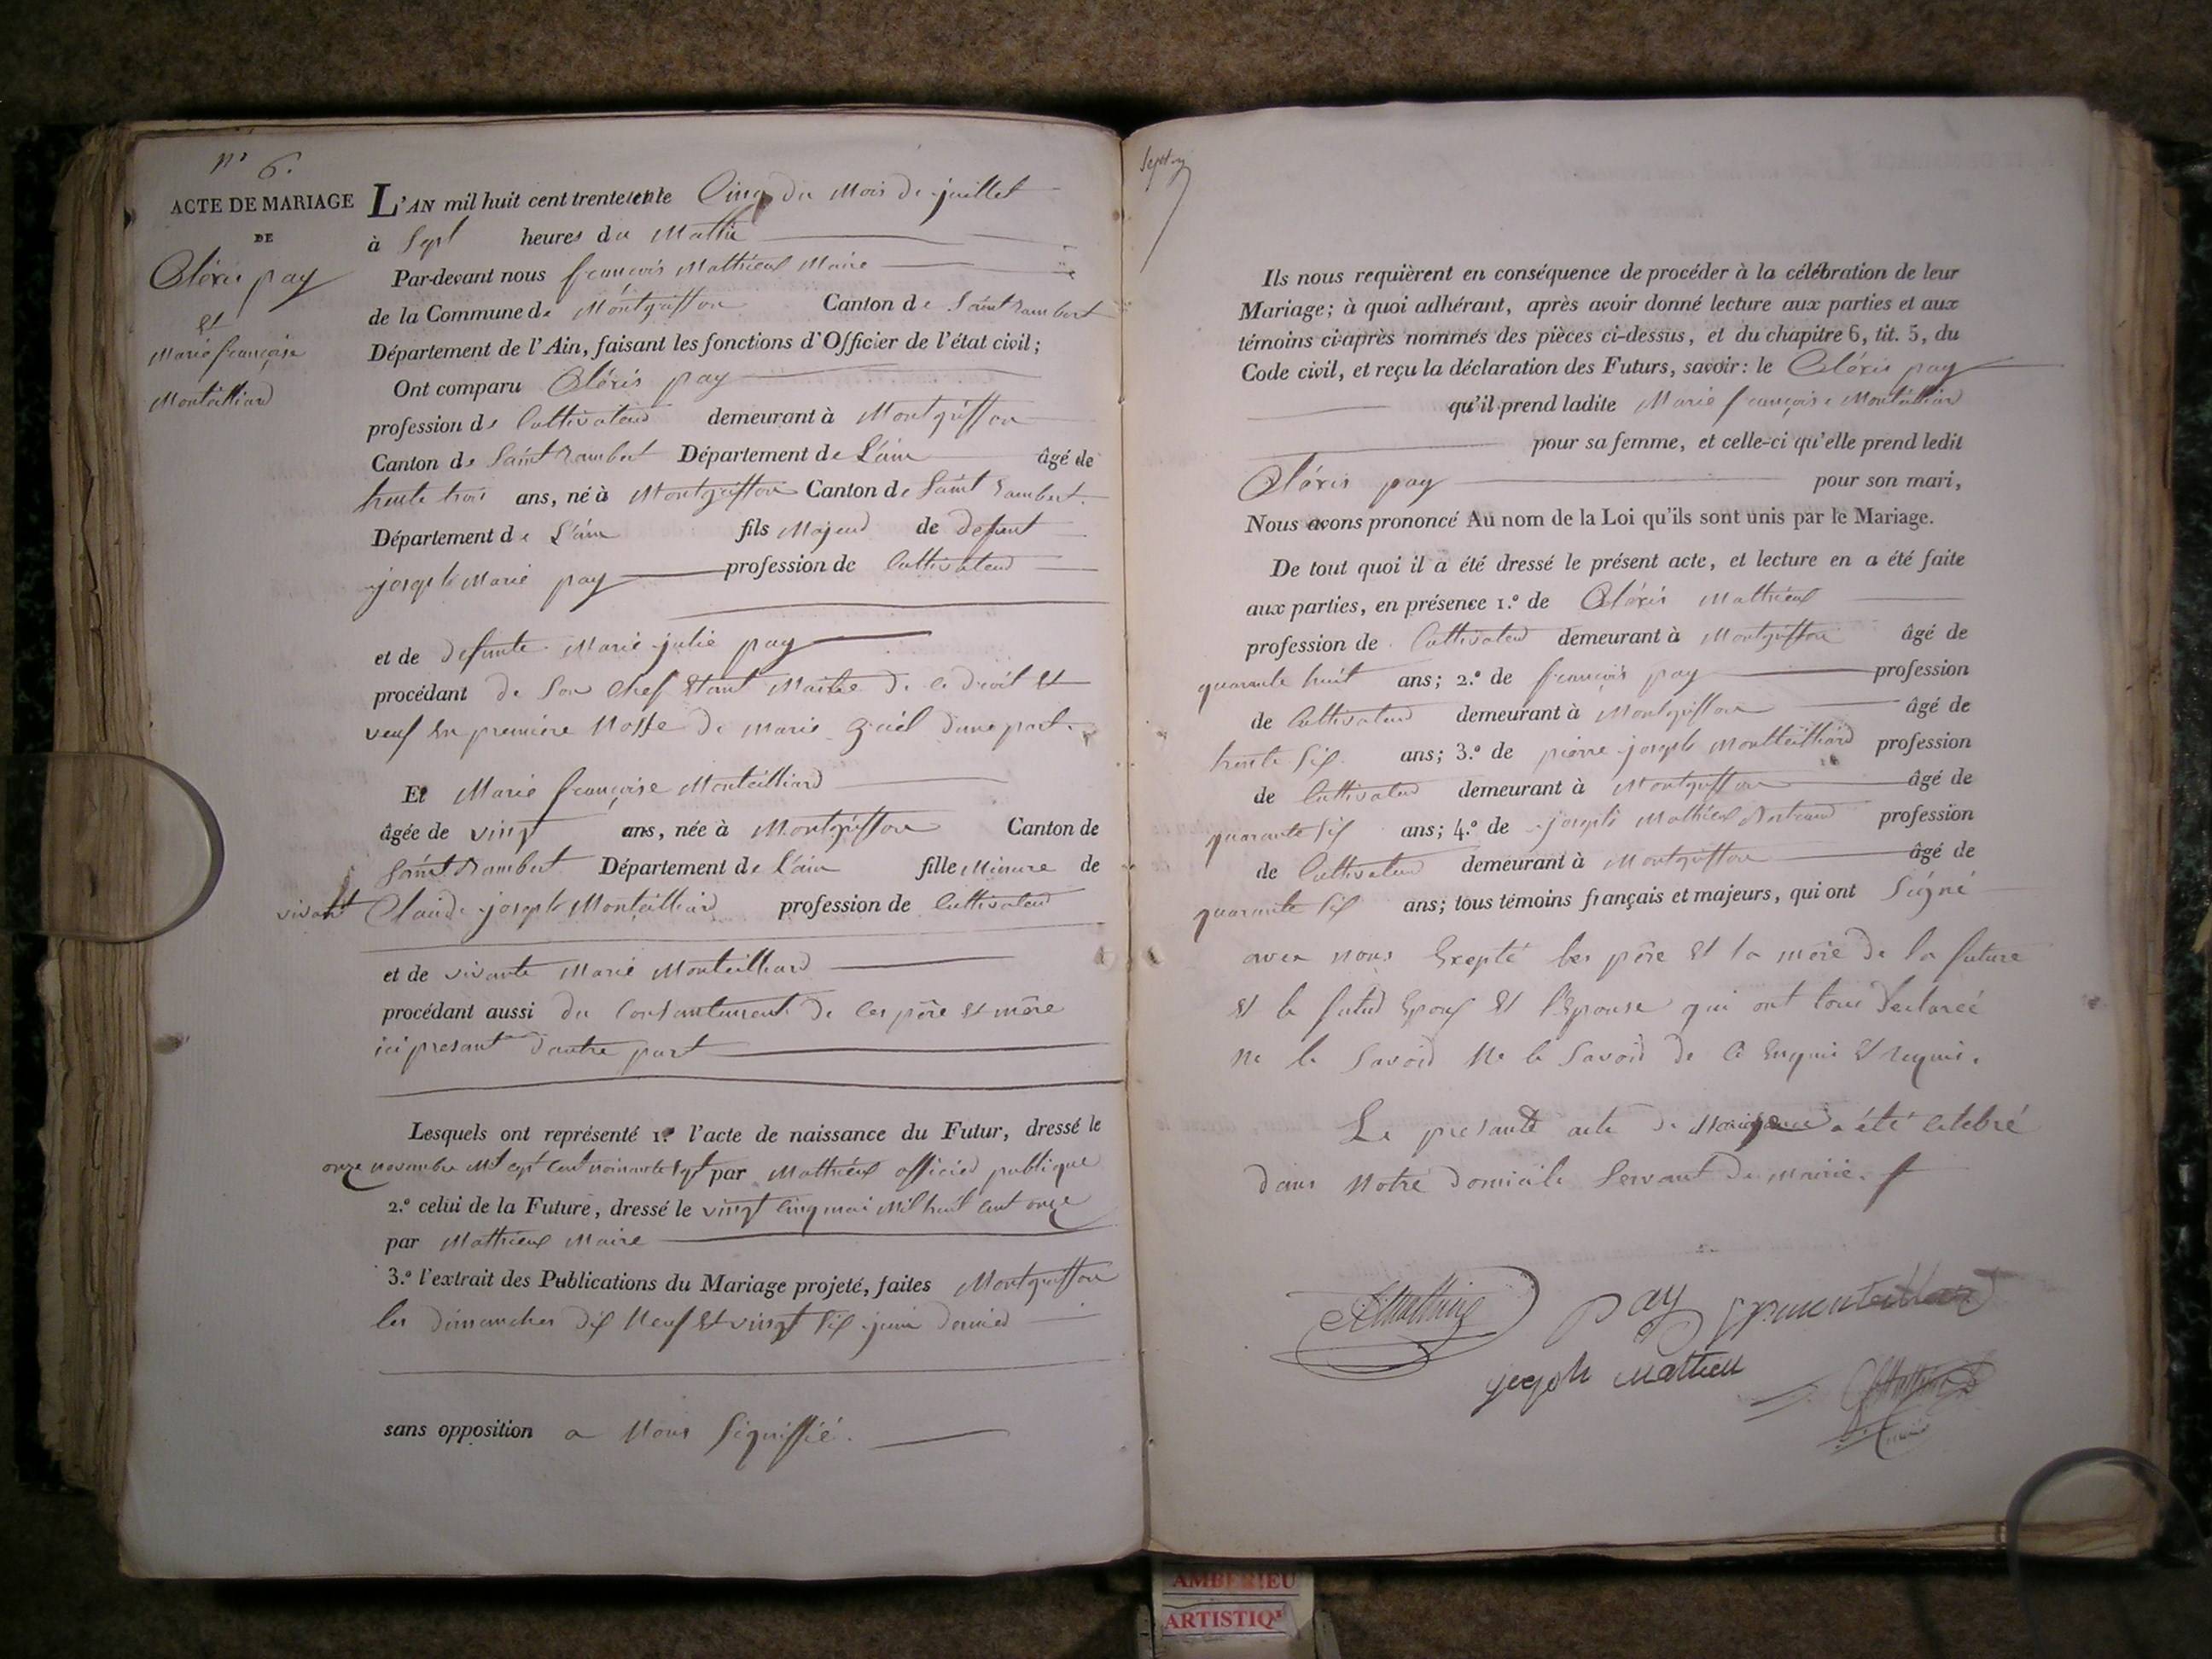 n° 6.
ACTE DE MARIAGE
DE
Aléxis pay
et
Marie françoise
Monteilliard
L'AN mil huit cent trente et le Cinq du Mois de juillet
à Sept heures du Mattin
Par-devant nous françois Mathieux Maire
de la Commune de Montgriffon Canton de Saint Rambert
Département de l'Ain, faisant les fonctions d'Officier de l'état civil;
Ont comparu Aléxis pay
profession de Cultivateur demeurant à Montgriffon
Canton de Saint Rambert Département de L'ain âgé de
trente trois ans, né à Montgriffon Canton de Saint Rambert.
Département de L'ain fils Majeur de defunt
joseph Marie pay profession de Cultivateur
et de defunte Marie julie pay
procédant de Son Chef Etant Maitre de ce droit Et
veuf En premiere Nosse de Marie d'une part.
Et Marie françoise Monteilliard
âgée de vingt ans, née à Montgriffon Canton de
Saint Rambert Département de L'ain fille Mineure de
vivant Claude joseph Monteilliard profession de Cultivateur
et de vivante Marie Monteilliard
procédant aussi du Consantement de Ces père Et mère
ici presant d'autre part
Lesquels ont représenté 1.º l'acte de naissance du Futur, dressé le
onze novembre Mil sept Cent noinante sept par Mathieux officier publique
2.º celui de la Future, dressé le vingt Cinq mai Mil huit Cent onze
par Mathieux Maire
3.º l'extrait des Publications du Mariage projeté, faites Montgriffon
les dimanches dix Neuf Et vingt Six juin dernier
sans opposition a Nous Signiffié.
Sept
Ils nous requièrent en conséquence de procéder à la célébration de leur
Mariage; à quoi adhérant, après avoir donné lecture aux parties et aux
témoins ci-après nommés des pièces ci-dessus, et du chapitre 6, tit. 5, du
Code civil, et reçu la déclaration des Futurs, savoir: le Aléxis pay
qu'il prend ladite Marie françoise Monteilliard
pour sa femme, et celle-ci qu'elle prend ledit
Aléxis pay pour son mari,
Nous avons prononcé Au nom de la Loi qu'ils sont unis par le Mariage.
De tout quoi il a été dressé le présent acte, et lecture en a été faite
aux parties, en présence 1.º de Aléxis Mathieux
profession de Cultivateur demeurant à Montgriffon âgé de
quarante huit ans; 2.º de françois pay profession
de Cultivateur demeurant à Montgriffon âgé de
trente Six ans; 3.º de pierre joseph Montteilliard profession
de Cultivateur demeurant à Montgriffon âgé de
quarante Six ans; 4.º de joseph Mathieux Bertrand profession
de Cultivateur demeurant à Montgriffon âgé de
quarante Six ans; tous témoins français et majeurs, qui ont Signé
avec nous Exepté les père Et la mère de la future
Et le futur Epoux Et l'Epouse qui ont tous declareé
ne le Savoir Ne le Savoir de Ce Enquis Et requis.
Le presante acte de Mariage a été Celebré
dans Notre domicile Servant de Mairie.
AMathieux pay pjmonteilliard
joseph mattieu
Mathieux
maire
AMBERIEU
ARTISTIQ